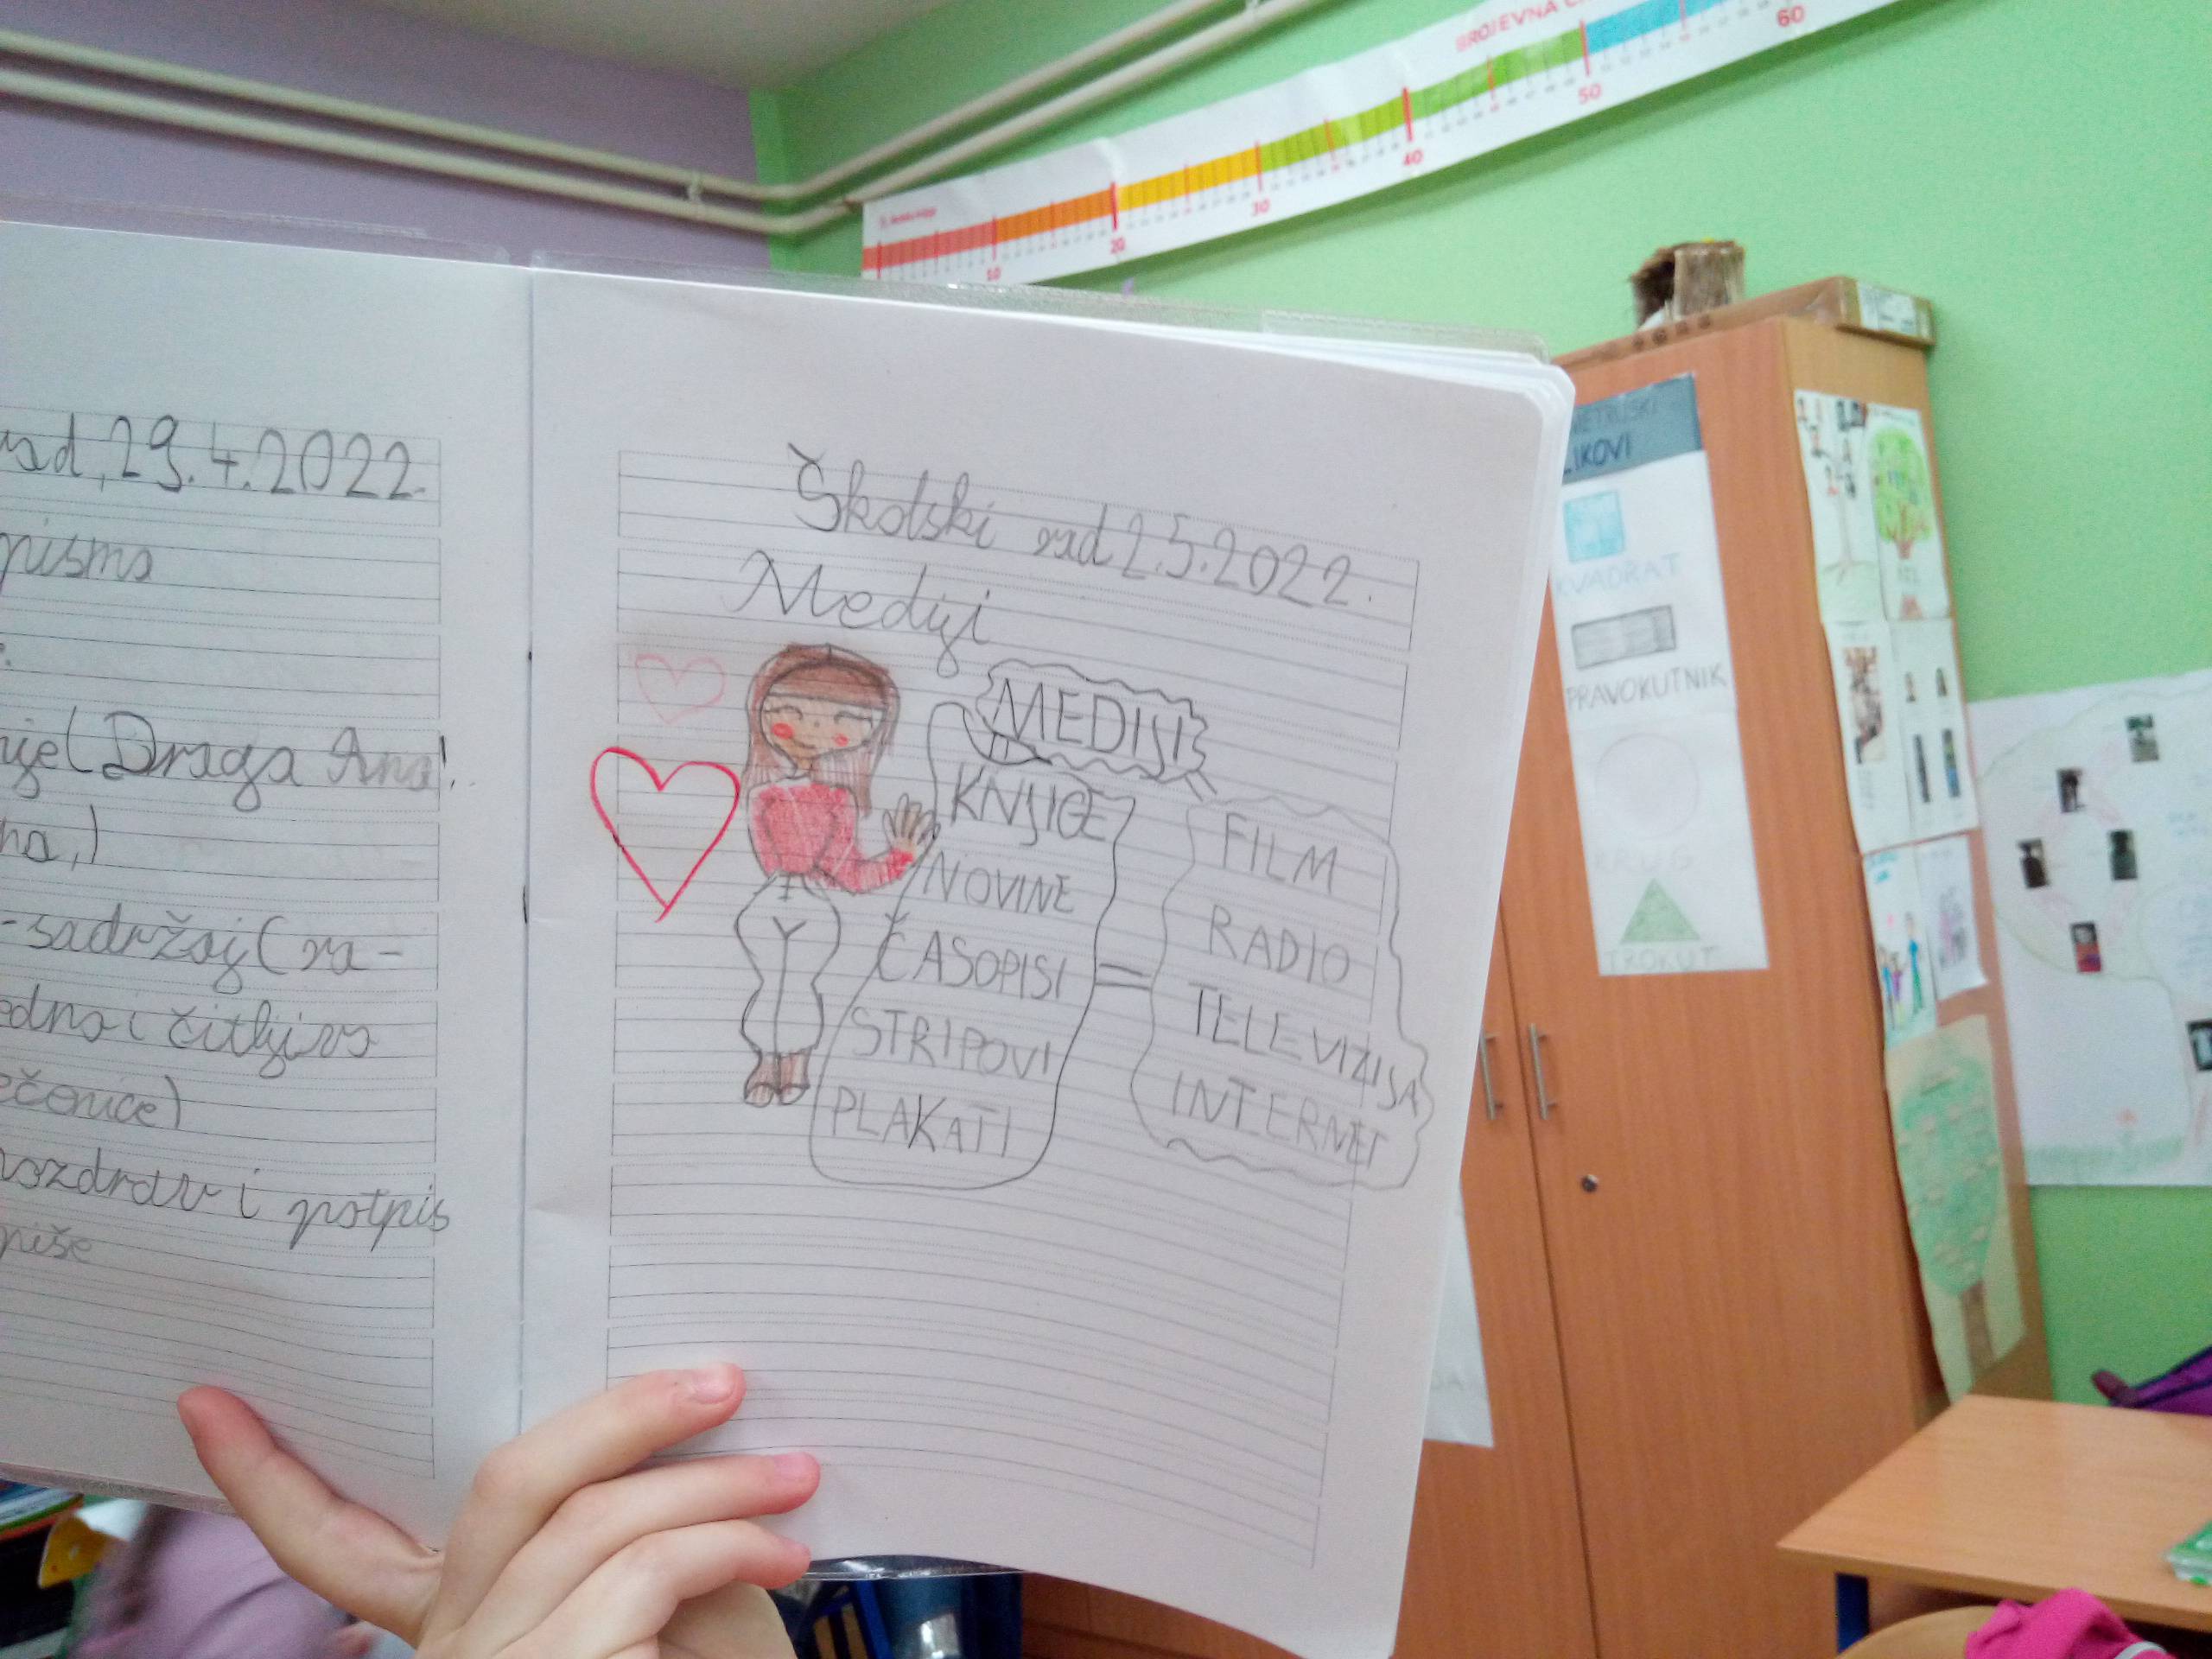 29.4.2022.
pismo
(Draga Ana!
-sadržaj(
i čitljivo
i potpis
piše
Školski rad 2.5.2022.
Mediji
MEDIJI
KNJIGE
NOVINE
ČASOPISI
STRIPOVI
PLAKATI
=
FILM
RADIO
TELEVIZIJA
INTERNET
BROJEVNA
10
20
30
40
50
60
LIKOVI
KVADRAT
PRAVOKUTNIK
KRUG
TROKUT